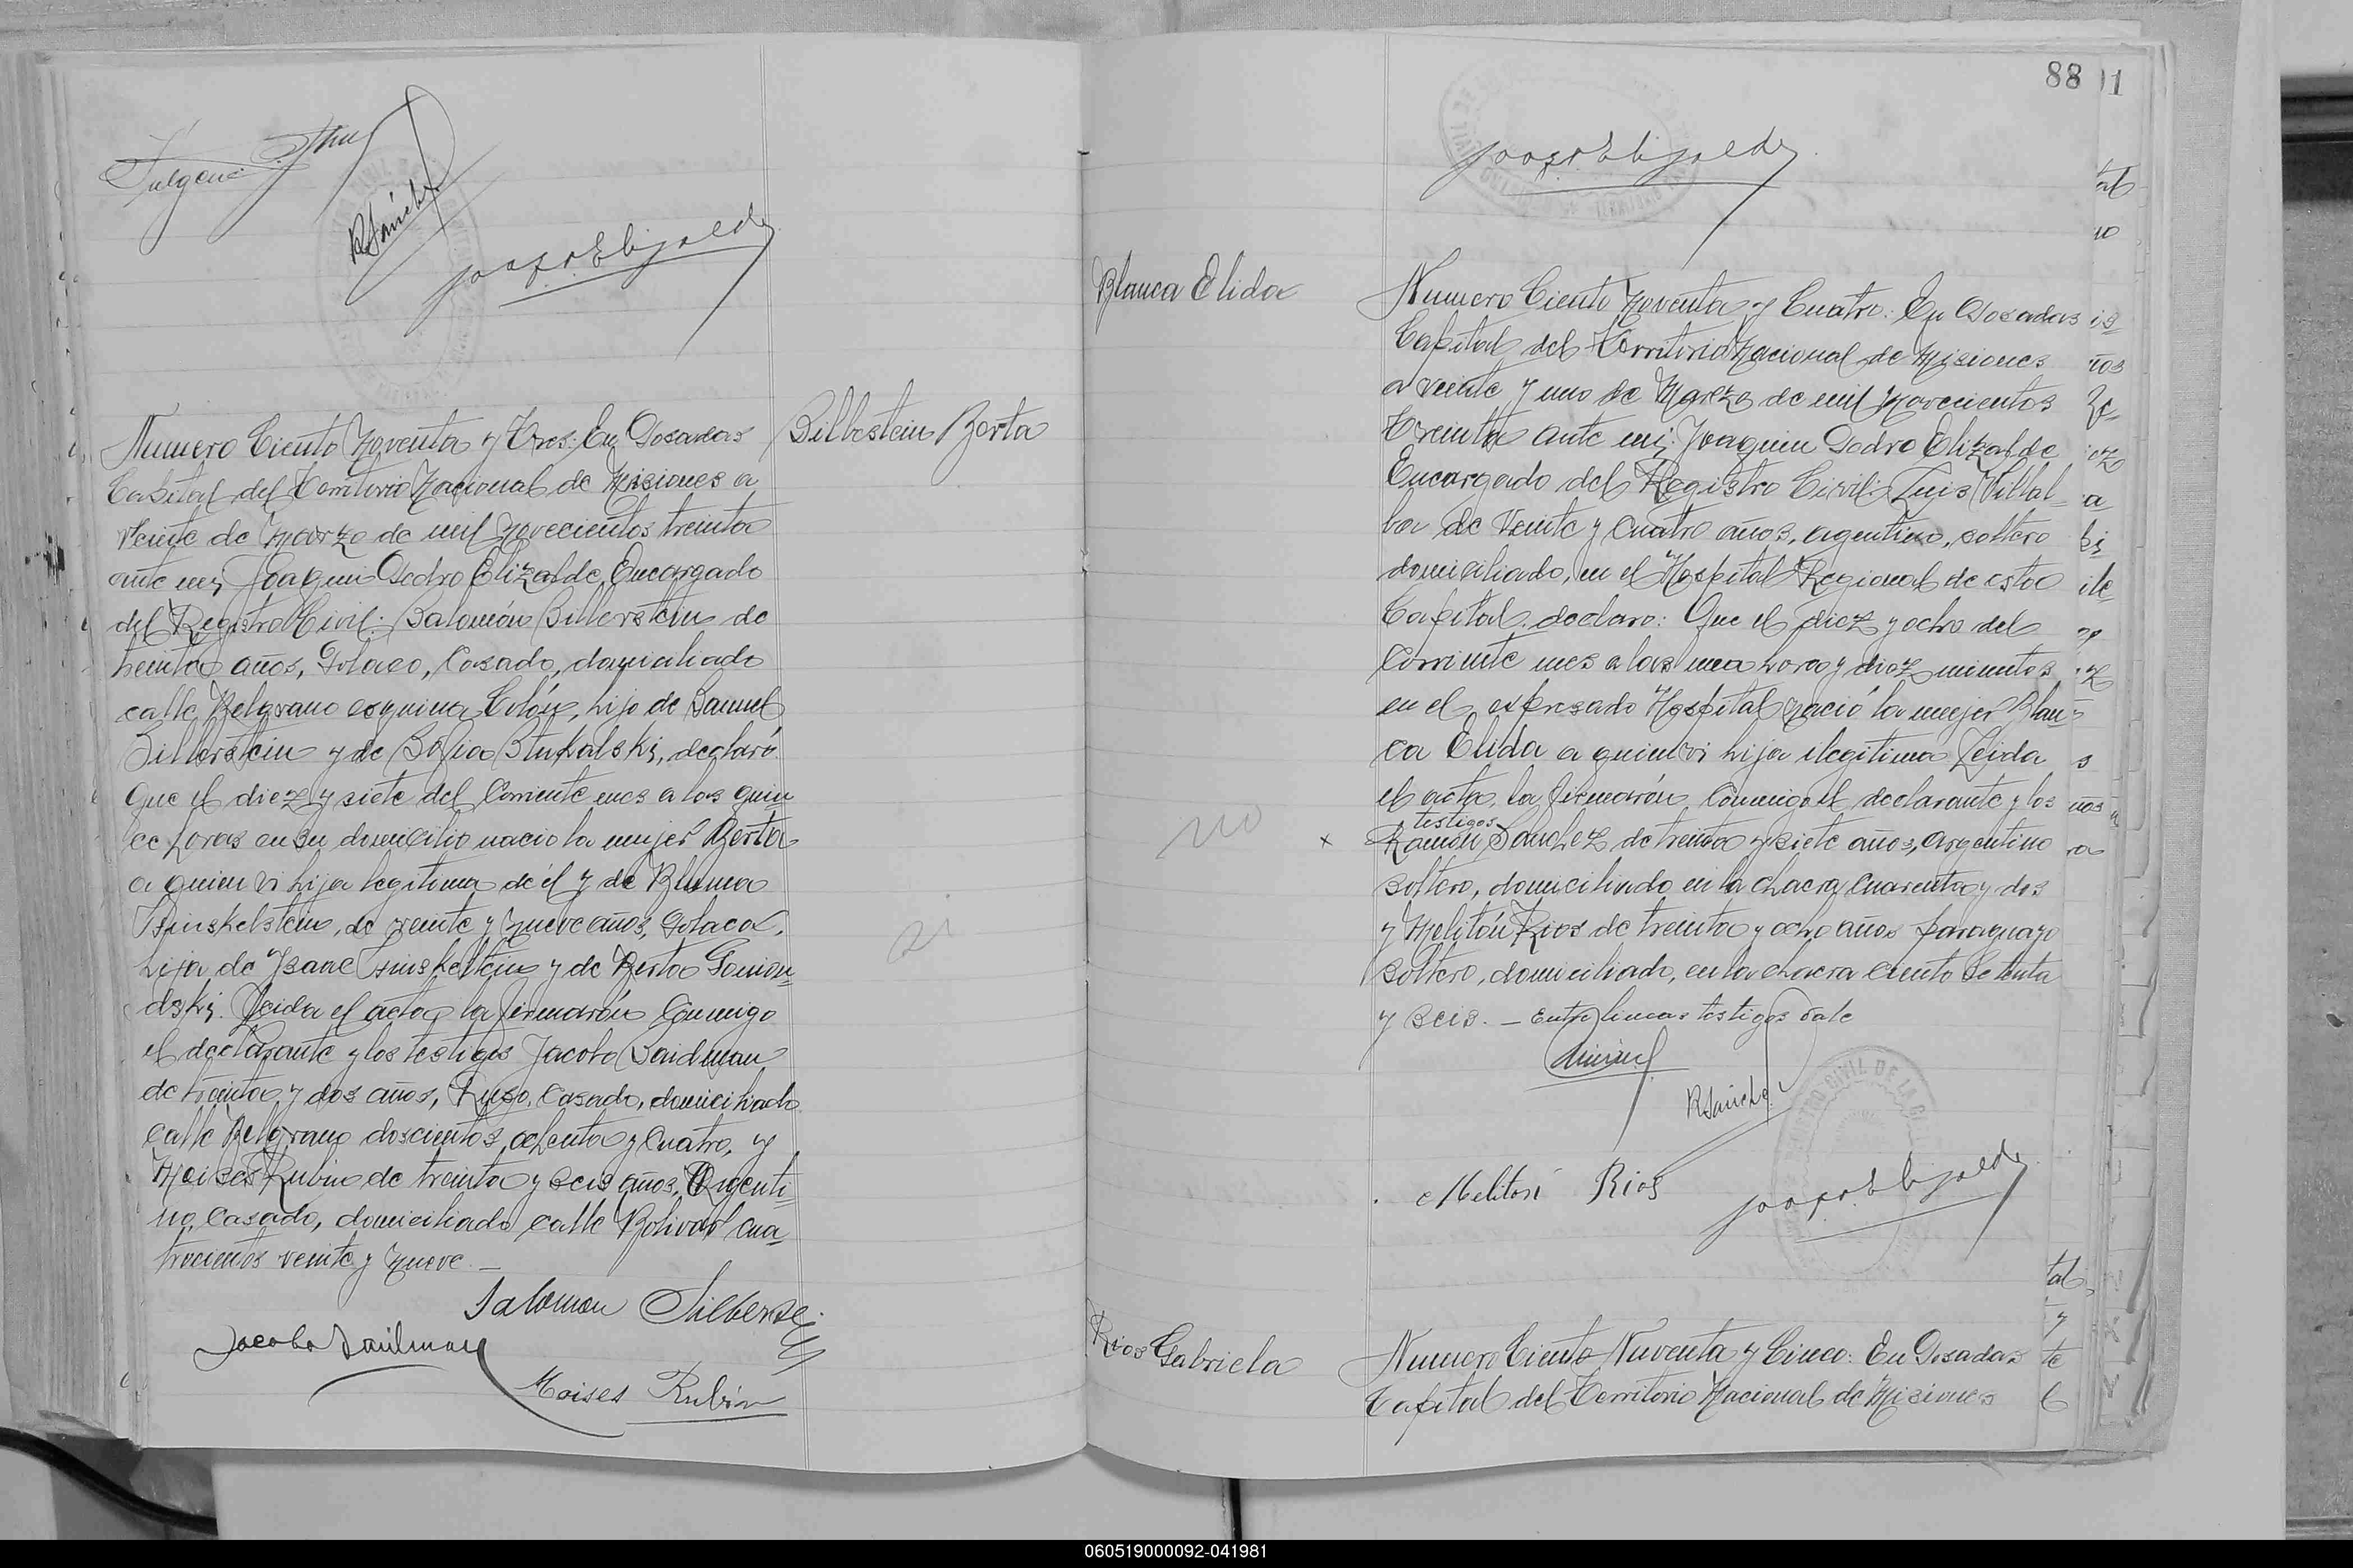 Fulgenc
RSánchez
Joaq P Elizalde
Numero Ciento Noventa y Tres: En Posadas
Capital del Territorio Nacional de Misiones a
Veinte de Marzo de mil Novecientos treinta
ante mi, Joaquin Pedro Elizalde Encargado
del Registro Civil: Salomón Silberstein de
treinta años, Polaco, Casado, domiciliado
calle Belgrano esquina Colón, hijo de Samuel
Silberstein y de Sofia Stukalski, declaró:
Que el diez y siete del Corriente mes a las quin
ce horas en su domicilio nacio la mujer Berta
a quien vi hija legitima de él y de Bluma
de veinte y nueve años, Polaca,
hija de Isaac y de Berta Gonion
dski. Leida el acta la firmarón Conmigo
el declarante y los testigos Jacobo Saidman
de treinta y dos años, Ruso, Casado, domiciliado
calle Belgrano doscientos ochenta y Cuatro, y
Moises Rubin de treinta y seis años, Argenti
no, Casado, domiciliado calle Bolivar cua
trocientos veinte y nueve. —
Salomon Silberstein
Jacobo Saidman
Moises Rubin
Silbestein Berta
si
88
Joaq P Elizalde
Blanca Elida
Numero Ciento Noventa y Cuatro: En Posadas
Capital del Territorio Nacional de Misiones
a veinte y uno de Marzo de mil Novecientos
Treinta ante mi; Joaquin Pedro Elizalde
Encargado del Registro Civil: Luis Villal
ba de Veinte y Cuatro años, argentino, soltero
domiciliado, en el Hospital Regional de esta
Capital, declaro: Que el diez y ocho del
Corriente mes a las una hora y diez minutos
en el expresado Hospital nació la mujer Blan
ca Elida a quien vi hija ilegitima Leida
el acta, la firmarón, Conmigo el declarante y los
testigos
no
x Ramón Sanchez de treinta y siete años, Argentino
Soltero, domiciliado en la chacra Cuarenta y dos
y Melitón Rios de treinta y ocho años paraguayo
Soltero, domiciliado, en la chacra Ciento Setenta
y seis. — Entre lineas testigos vale
RSánchez
Meliton Rios
Joaq P Elizalde
REGISTRO CIVIL DE LA
Rios Gabriela
Numero Ciento Nuventa y Cinco: En Posadas
Capital del Territorio Nacional de Misiones
060519000092-041981